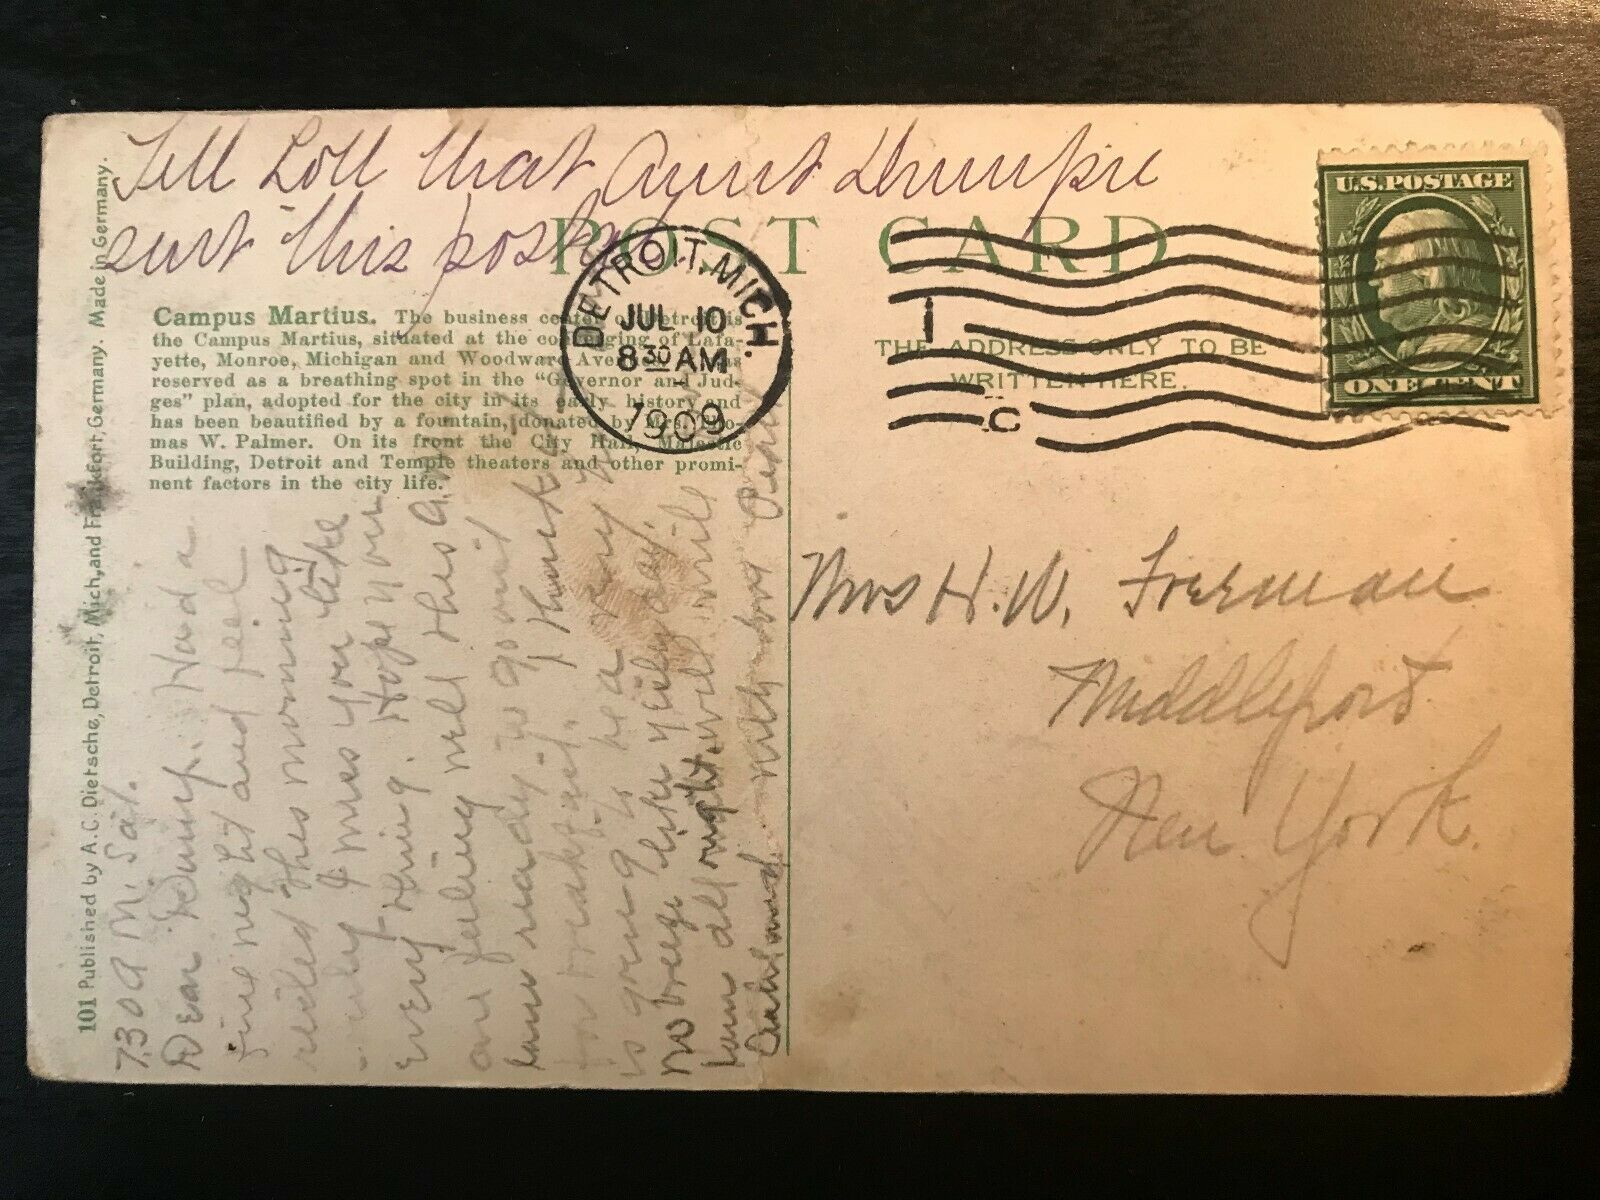 Tell Loll that Aunt Dumpie
sent this postal
POST CARD
THE ADDRESS ONLY TO BE
WRITTEN HERE.
U.S. POSTAGE
ONE CENT
DETROIT, MICH.
JUL 10
8 30 AM
1909
1
C
Campus Martius. The business center of Detroit is
the Campus Martius, situated at the converging of Lafa-
yette, Monroe, Michigan and Woodward Avenues. It was
reserved as a breathing spot in the “Governor and Jud-
ges” plan, adopted for the city in its early history and
has been beautified by a fountain, donated by Mrs. Tho-
mas W. Palmer. On its front the City Hall, Majestic
Building, Detroit and Temple theaters and other promi-
nent factors in the city life.
101 Published by A. C. Dietsche, Detroit, Mich, and Frankfort, Germany. Made in Germany.
7.30 A M. Sat.
Dear Dump. Had a
fine night and feel
this morning
I miss you like
everything. Hope you
are feeling well this a.m.
am ready to go out
for breakfast. I think it
is going to be a very
no breeze like yesterday.
am all right. will write
Husband
Mrs H. W. Freeman
Middleport
New York.